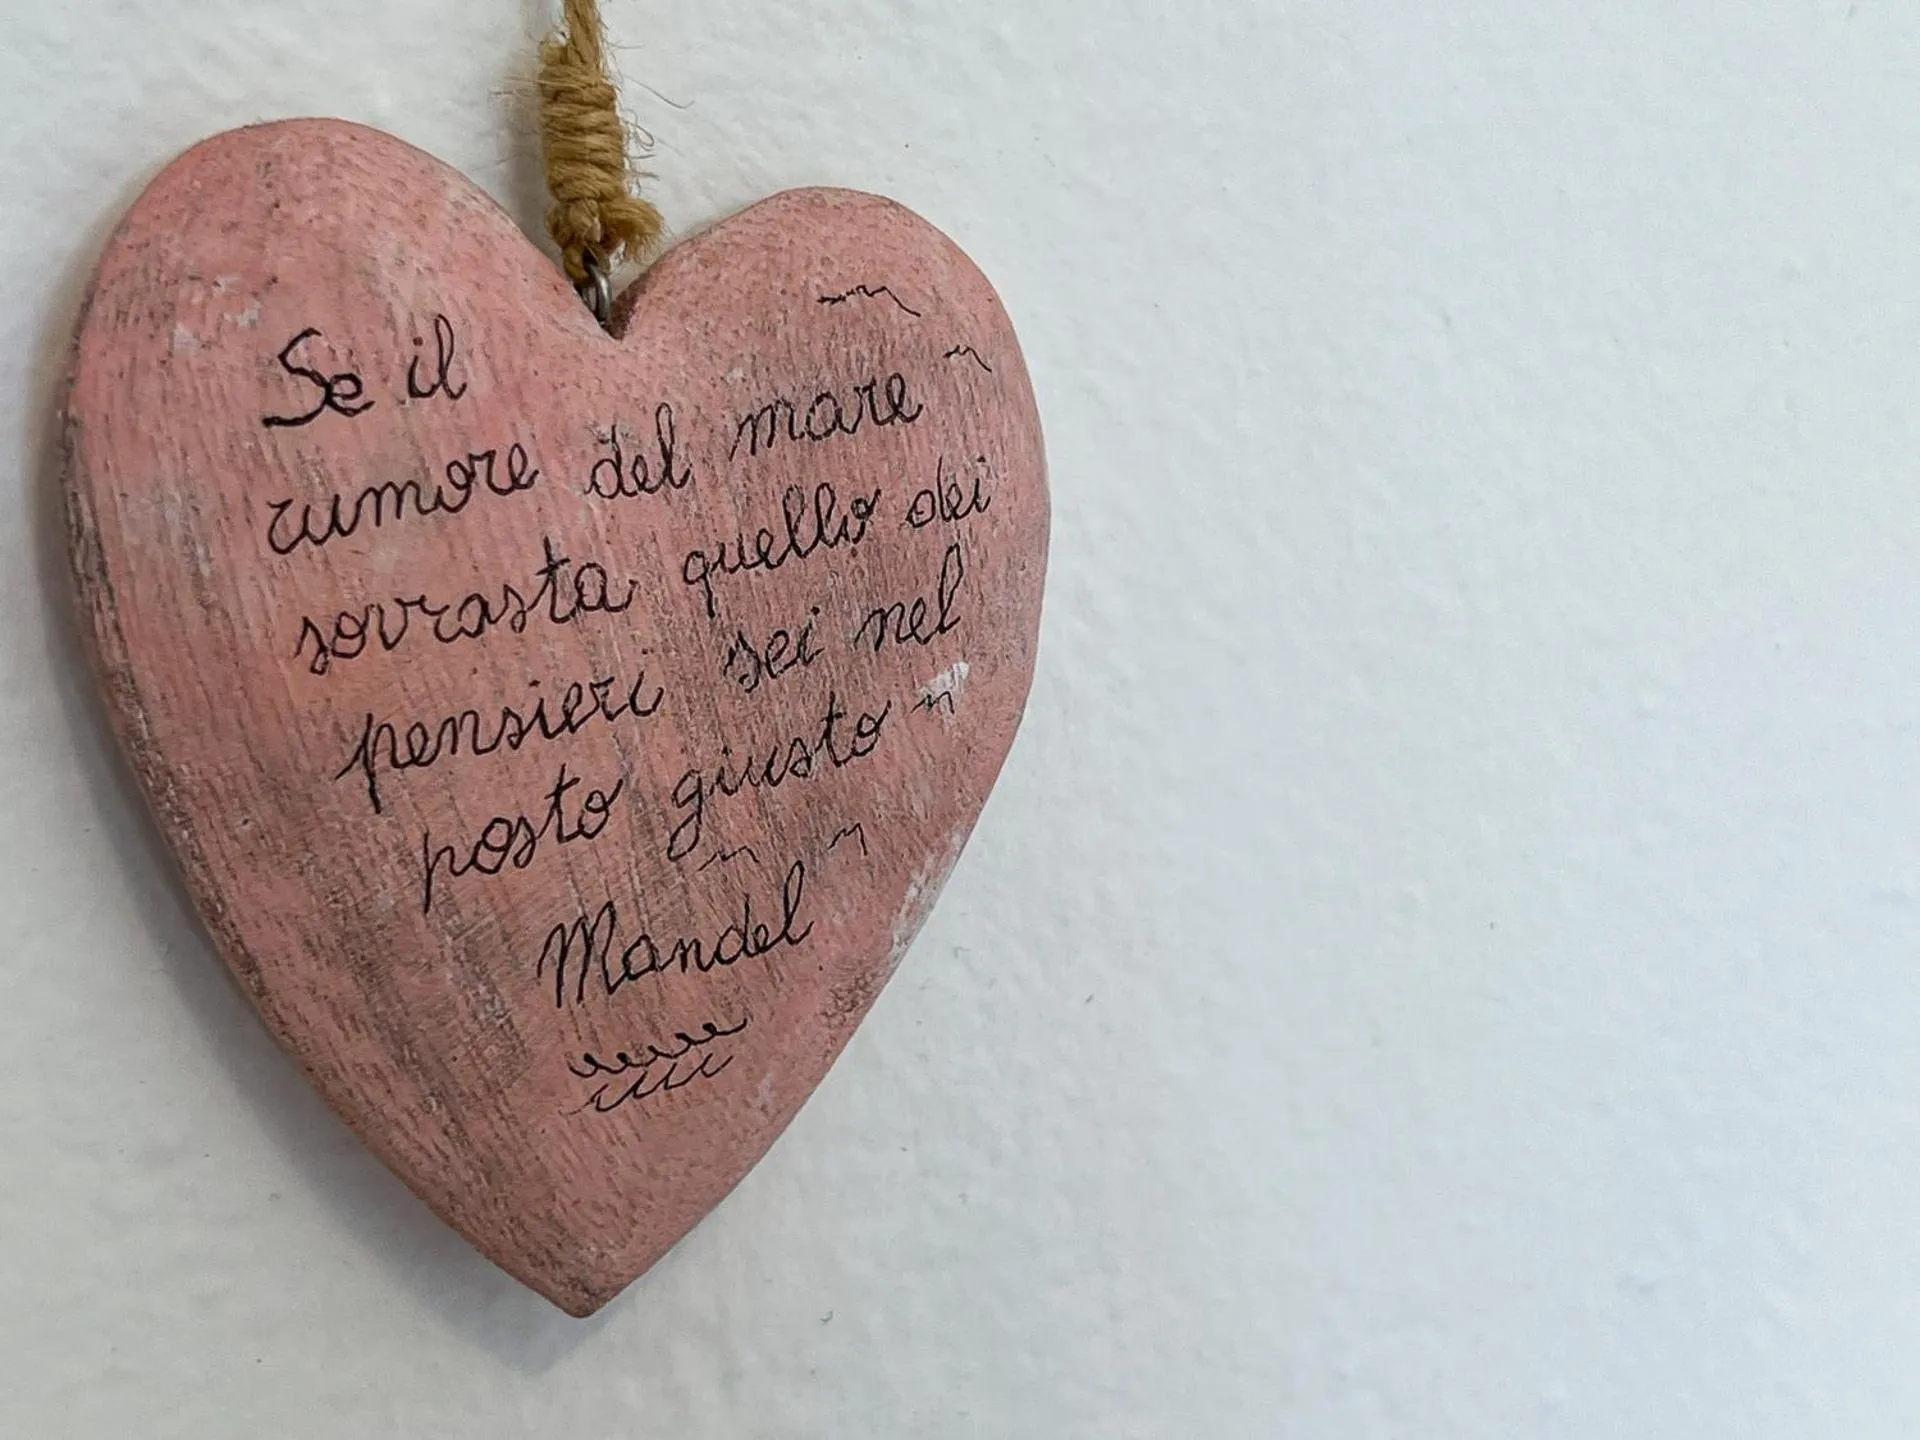 Se il
rumore del mare
sovrasta quello dei
pensieri sei nel
posto giusto
Mandel